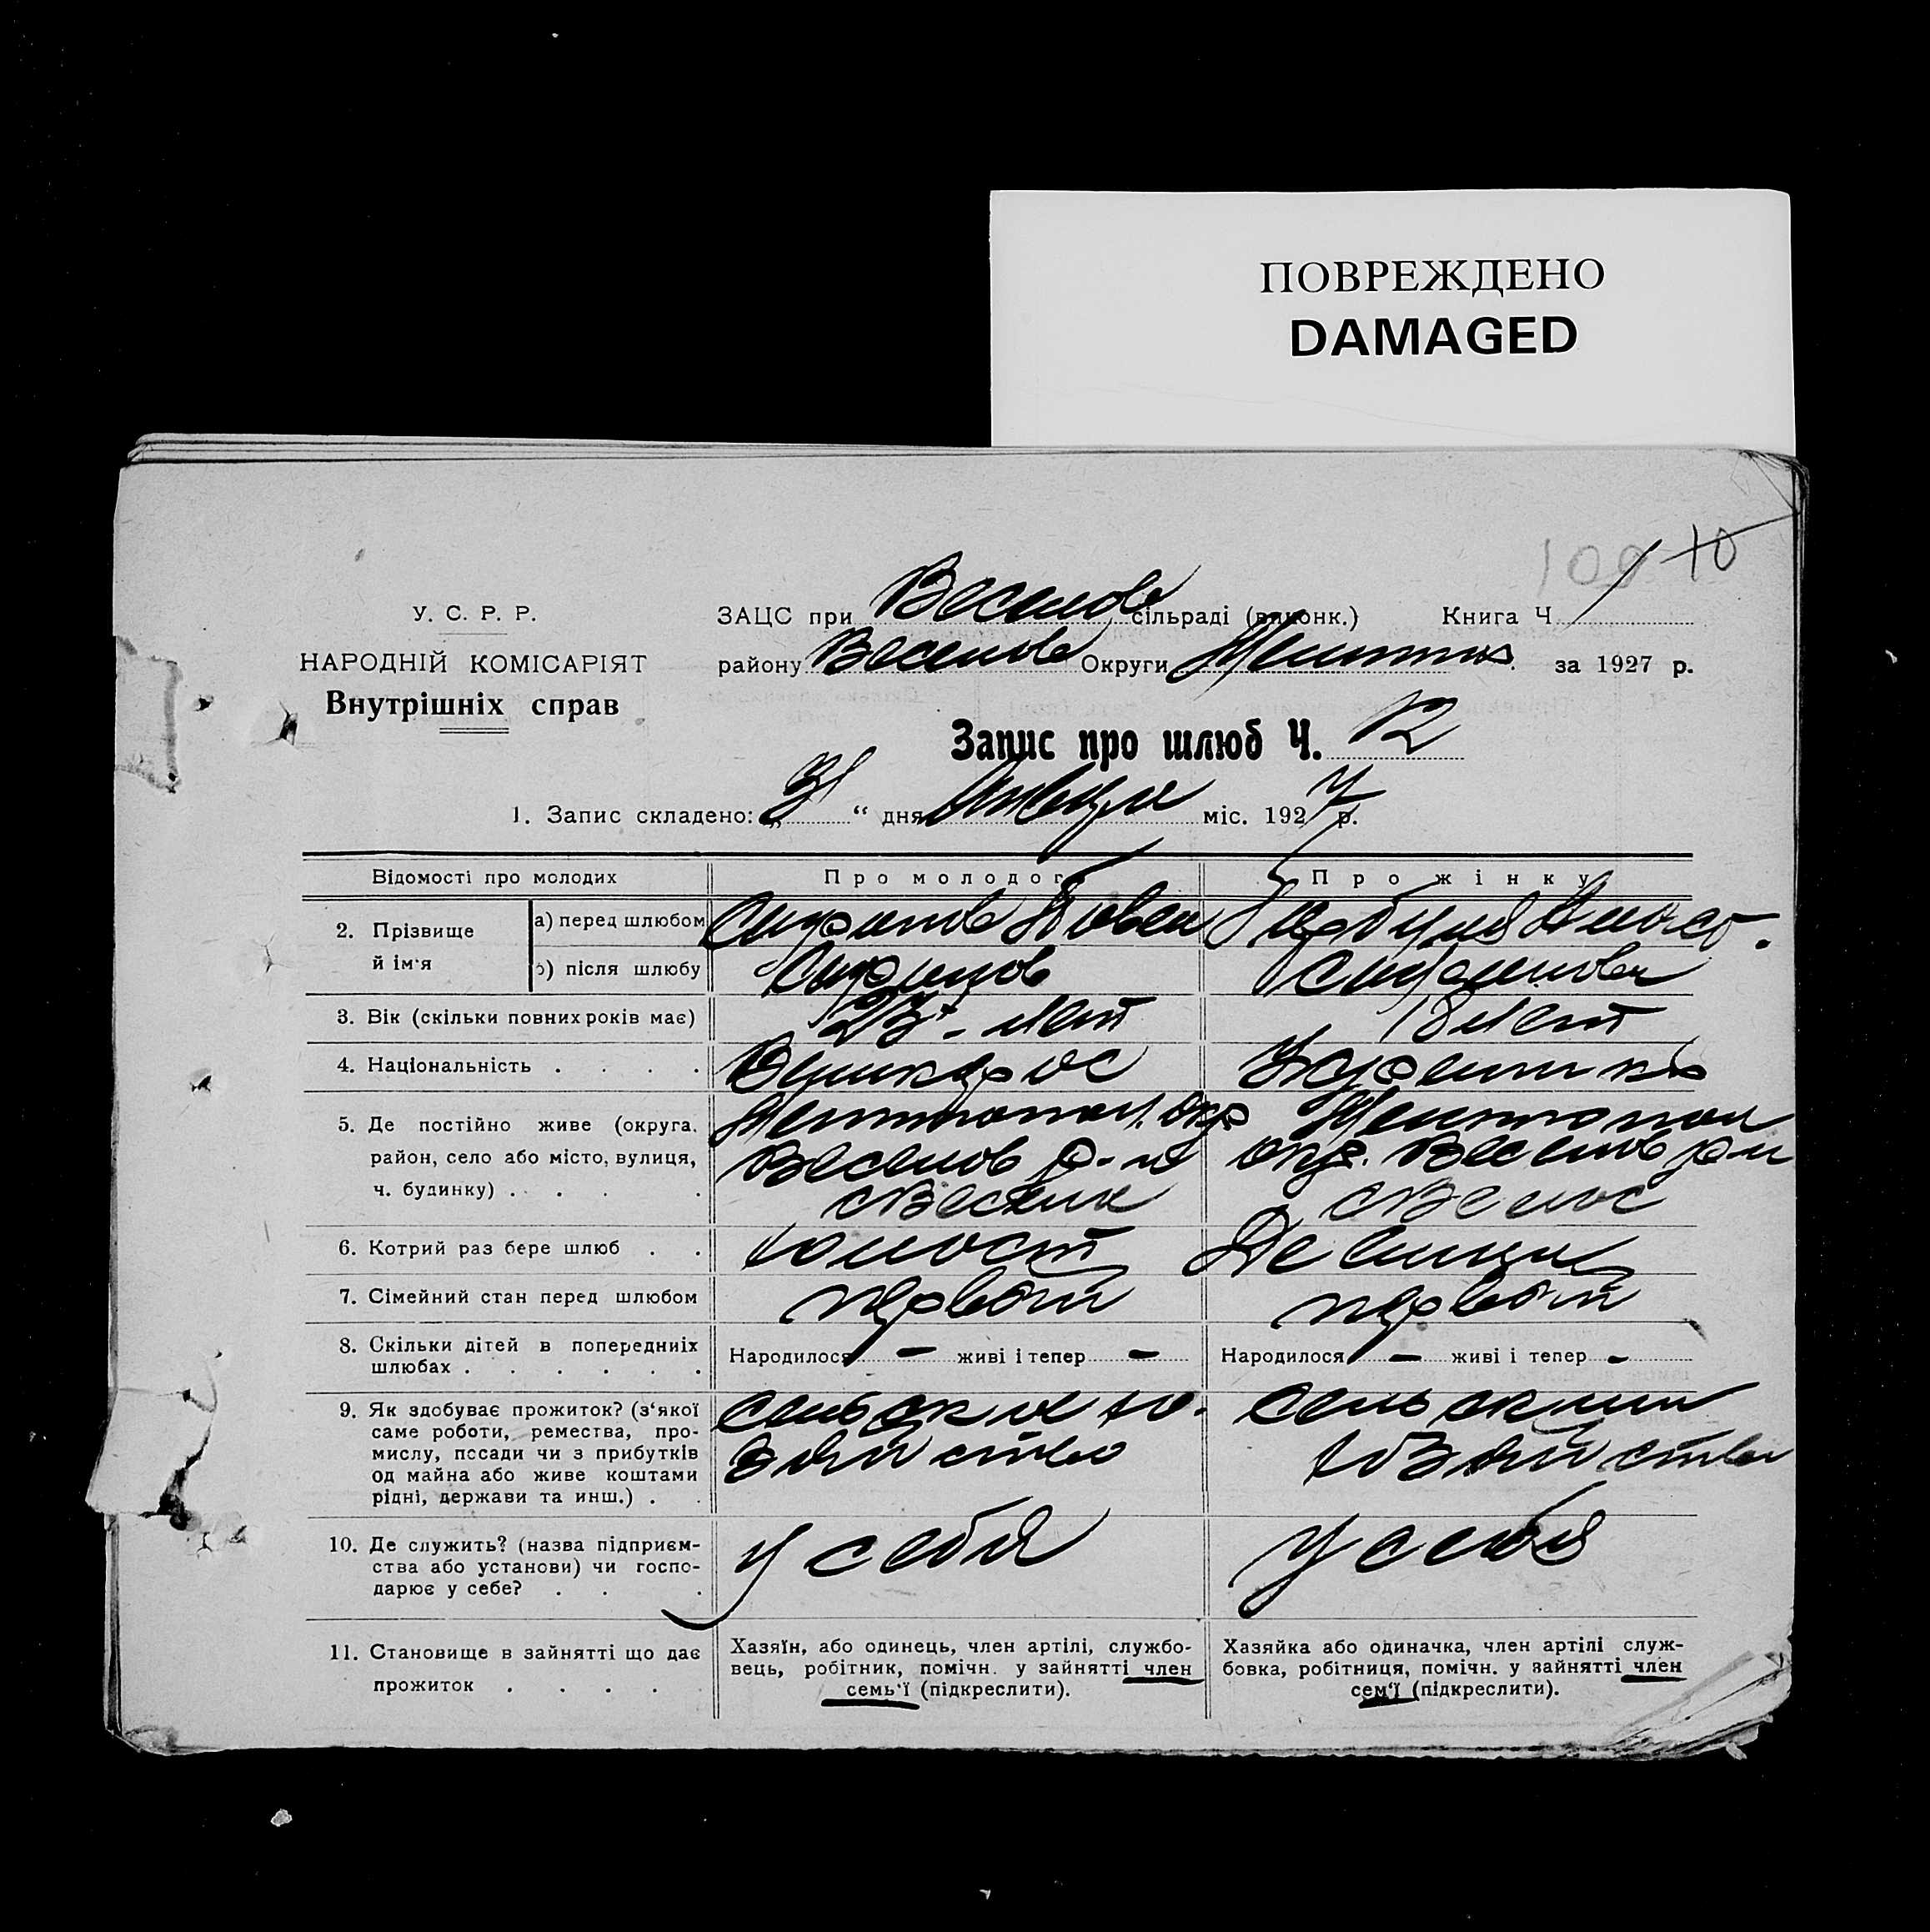 ПОВРЕЖДЕНО
DAMAGED
100 10
У. С. Р. Р.
НАРОДНІЙ КОМІСАРІЯТ
Внутрішніх справ
ЗАЦС при Веселов сільраді (виконк.) Книга Ч 1
району Веселов Округи за 1927 р.
Запис про шлюб Ч. 12
1. Запис складено: „31“ дня Января міс. 1927 р.
Відомості про молодих
Про молодог
Про жінку
2. Прізвище й ім'я
а) перед шлюбом
б) після шлюбу
3. Вік (скільки повних років має) 23 лет 18 лет
4. Національність . . . . Великорос Украинка
5. Де постійно живе (округа,
район, село або місто, вулиця,
ч. будинку) . . . .
Мелитопол. окр
Веселов р-н
с Веселое
Мелитопол
окр. Веселов р-н
с Велос
6. Котрий раз бере шлюб . . холост Девица
7. Сімейний стан перед шлюбом первый первый
8. Скільки дітей в попередніх
шлюбах . . . . . .
Народилося — живі і тепер —
Народилося — живі і тепер —
9. Як здобуває прожиток? (з'якої
саме роботи, ремества, про-
мислу, посади чи з прибутків
од майна або живе коштами
рідні, держави та инш.) . .
сельское хо-
зяйство
сельским
хозяйством
10. Де служить? (назва підприєм-
ства або установи) чи госпо-
дарює у себе? . . .
у себя
у себя
11. Становище в зайнятті що дає
прожиток . . . . .
Хазяїн, або одинець, член артілі, службо-
вець, робітник, помічн. у зайнятті член
семь'ї (підкреслити).
Хазяйка або одиначка, член артілі служ-
бовка, робітниця, помічн. у зайнятті член
сем'ї (підкреслити).